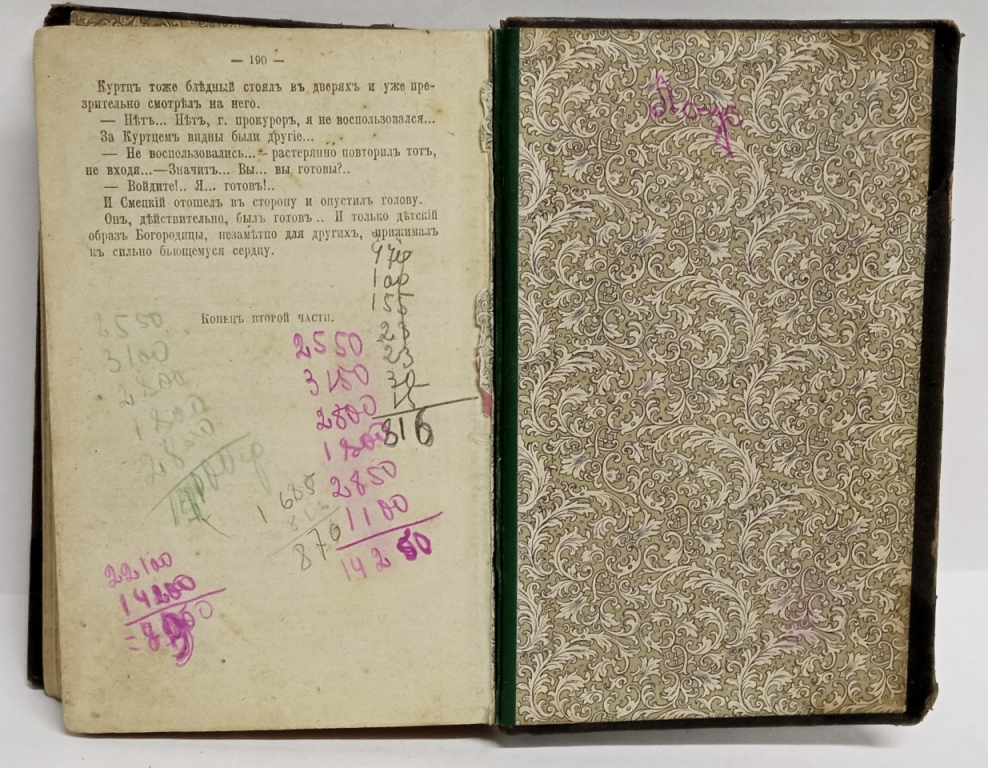 — 190 —
Куртцъ тоже блѣдный стоялъ въ дверяхъ и уже пре-
зрительно смотрѣлъ на него.
— Нѣтъ... Нѣтъ, г. прокуроръ, я не воспользовался...
За Куртцемъ видны были другіе...
— Не воспользовались... — растерянно повторилъ тотъ,
не входя...—Значитъ... Вы... вы готовы?..
— Войдите!.. Я... готовъ!..
И Смецкій отошелъ въ сторону и опустилъ голову.
Онъ, дѣйствительно, былъ готовъ... И только дѣтскій
образъ Богородицы, незамѣтно для другихъ, прижималъ
къ сильно бьющемуся сердцу.
100
Конецъ второй части.
2550
3150
2800
816
2850
1100
14250
2550
3100
1685
876
22100
14200